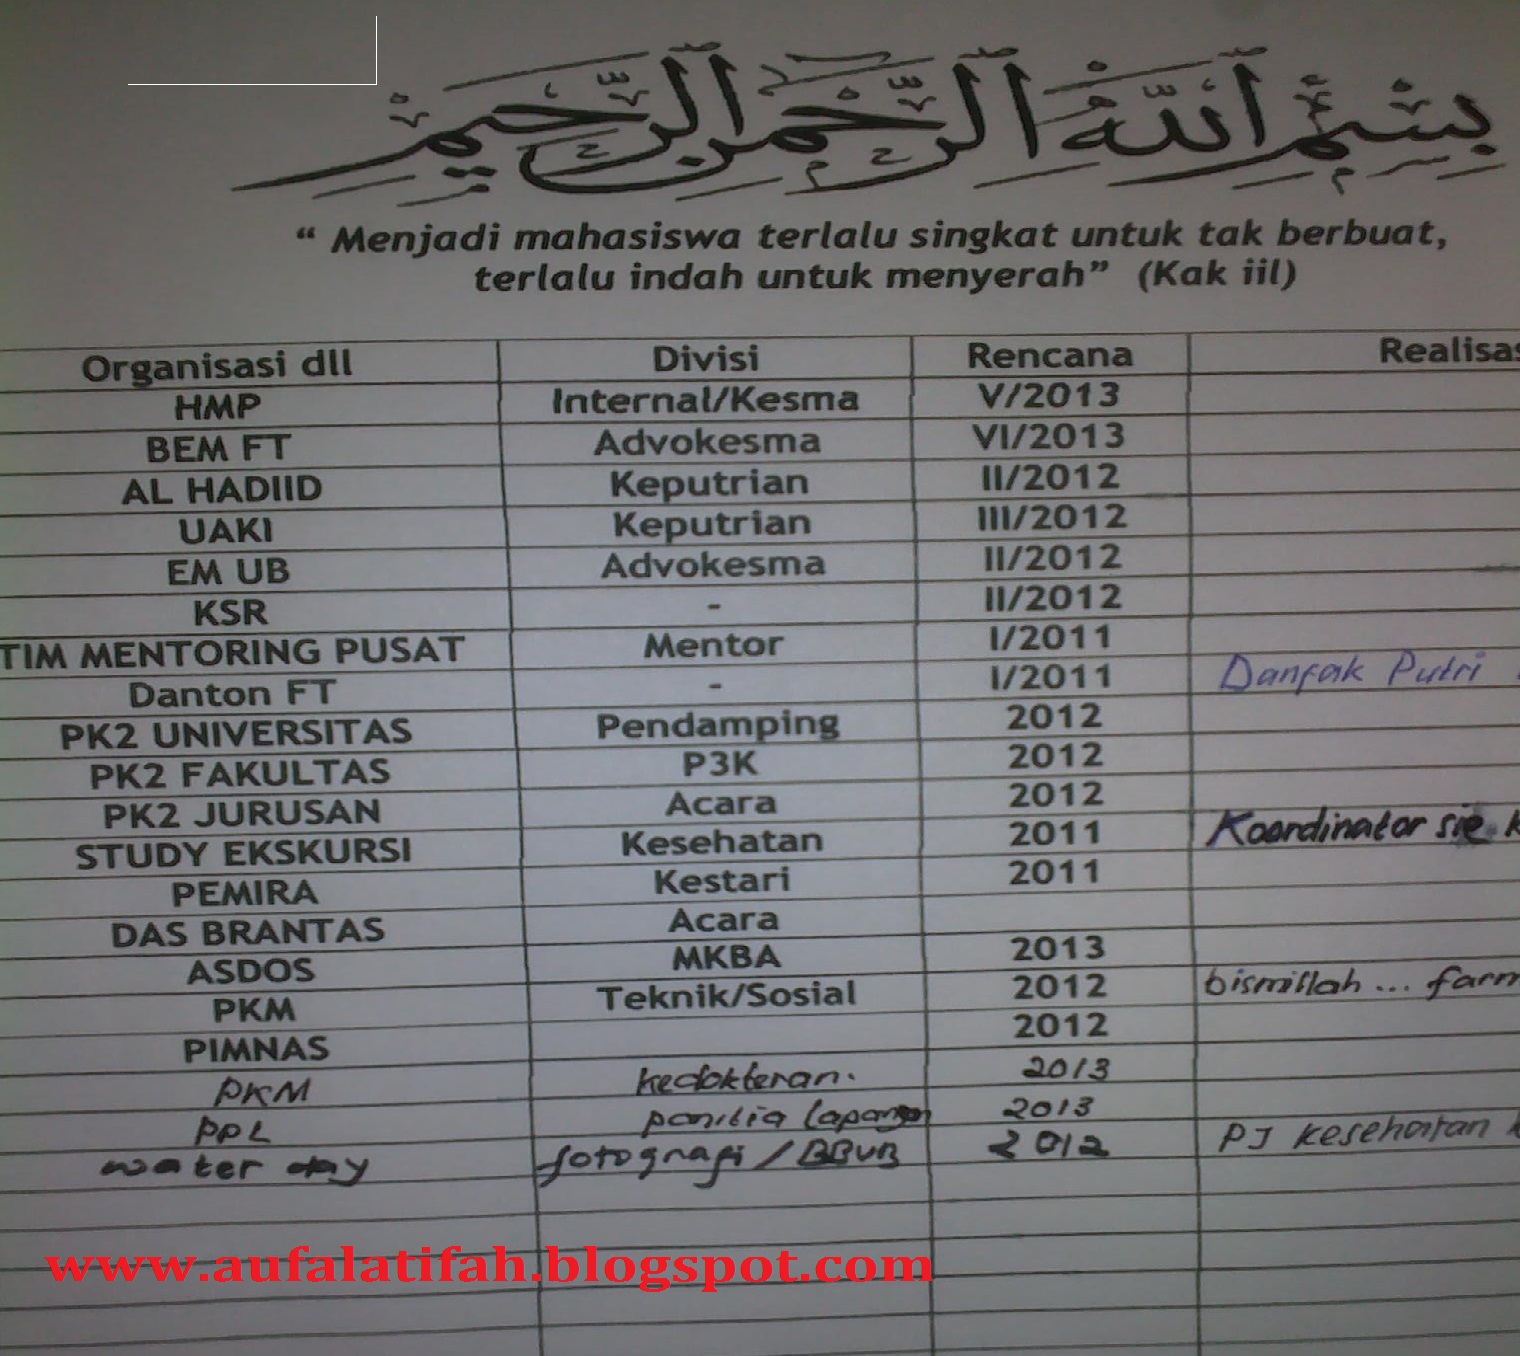 بِسْمِ اللَّهِ الرَّحْمَنِ الرَّحِيمِ
“ Menjadi mahasiswa terlalu singkat untuk tak berbuat,
terlalu indah untuk menyerah” (Kak iil)
Organisasi dll Divisi Rencana Realisas
HMP Internal/Kesma V/2013
BEM FT Advokesma VI/2013
AL HADIID Keputrian II/2012
UAKI Keputrian III/2012
EM UB Advokesma II/2012
KSR - II/2012
TIM MENTORING PUSAT Mentor I/2011
Danton FT - I/2011 Danfak Putri
PK2 UNIVERSITAS Pendamping 2012
PK2 FAKULTAS P3K 2012
PK2 JURUSAN Acara 2012
STUDY EKSKURSI Kesehatan 2011 Koordinator sie k
PEMIRA Kestari 2011
DAS BRANTAS Acara
ASDOS MKBA 2013
PKM Teknik/Sosial 2012 bismillah ... farm
PIMNAS 2012
PKM kedokteran. 2013
PPL panitia lapangan 2013
water day fotografi / BBUB 2012 PJ kesehatan
www.aufalatifah.blogspot.com